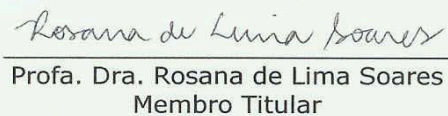 Rosana de Lima Soares
Profa. Dra. Rosana de Lima Soares
Membro Titular